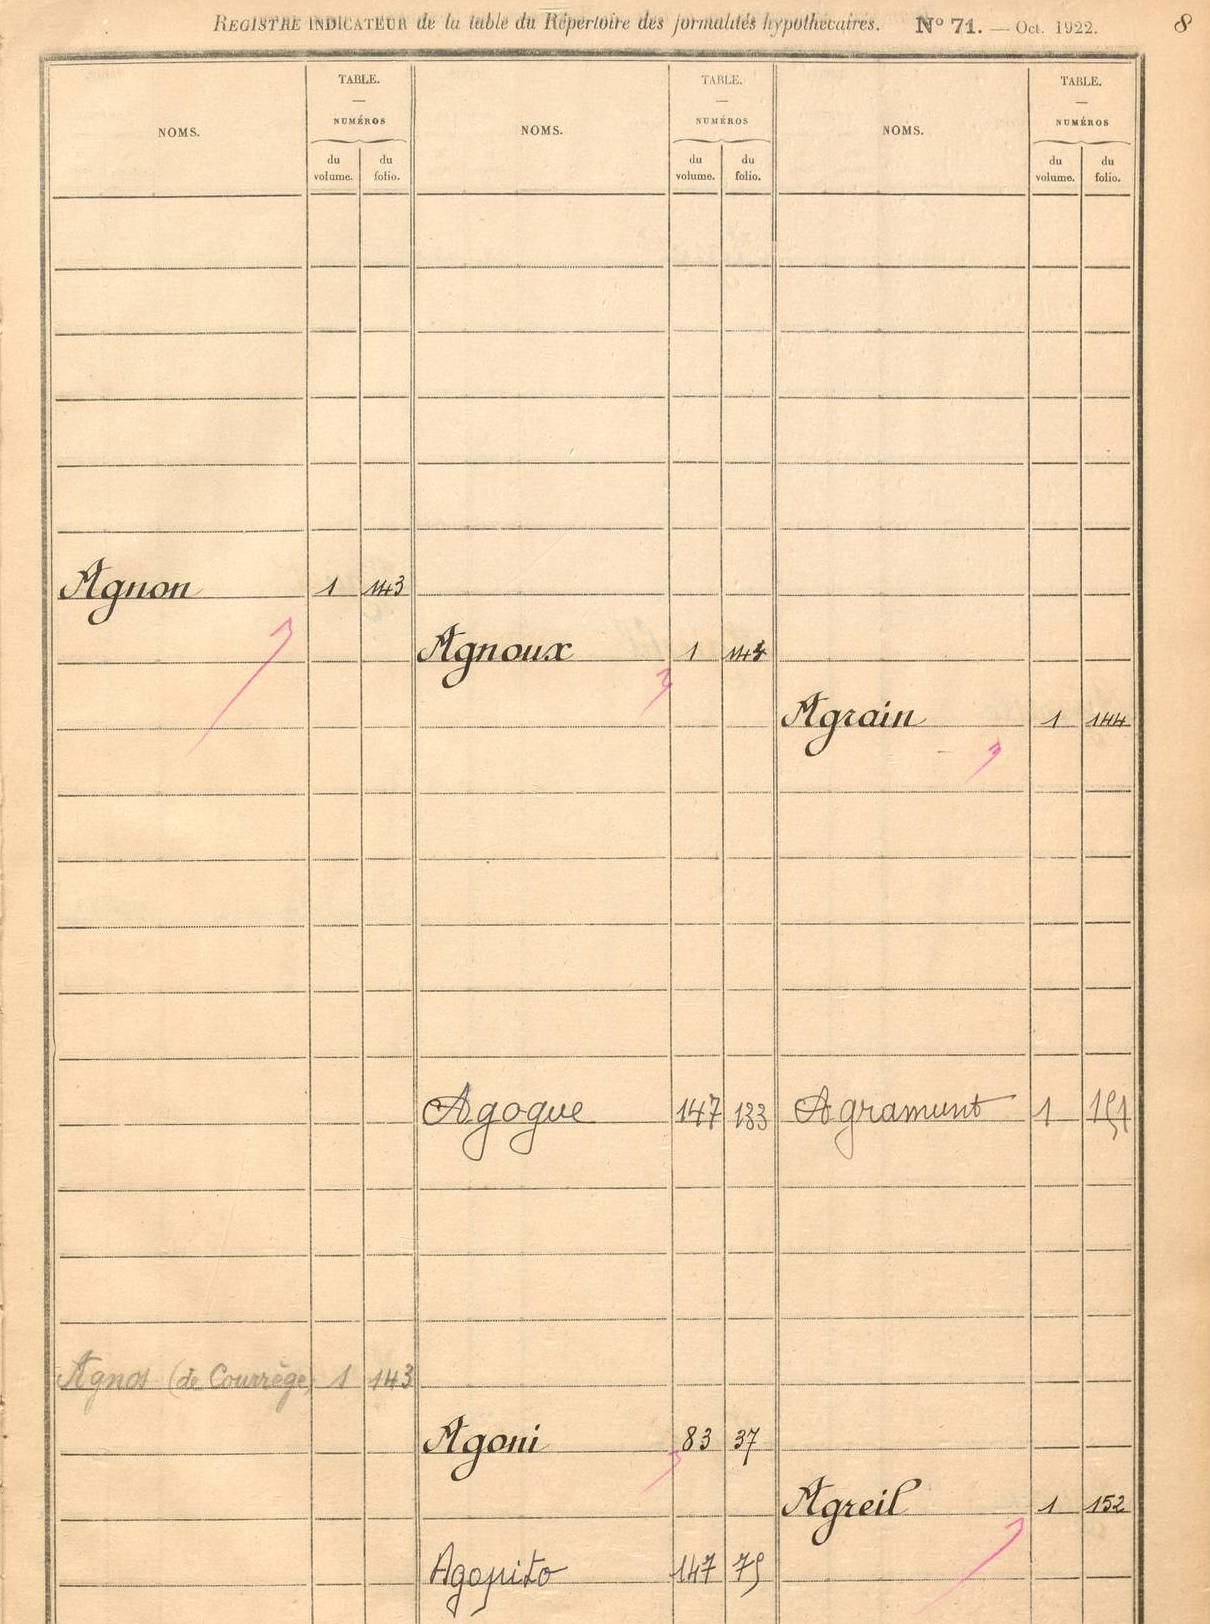 REGISTRE INDICATEUR de la table du Répertoire des formalités hypothécaires. N° 71. — Oct. 1922. 8
NOMS. TABLE. — NUMÉROS du volume. du folio.
NOMS. TABLE. — NUMÉROS du volume. du folio.
NOMS. TABLE. — NUMÉROS du volume. du folio.
Agnon 1 143
Agnos (de Courrège) 1 143
Agnoux 1
Agogue 147 133
Agoni 83 37
Agopito 147 75
Agrain 1 144
Agramunt 1 151
Agreil 1 152